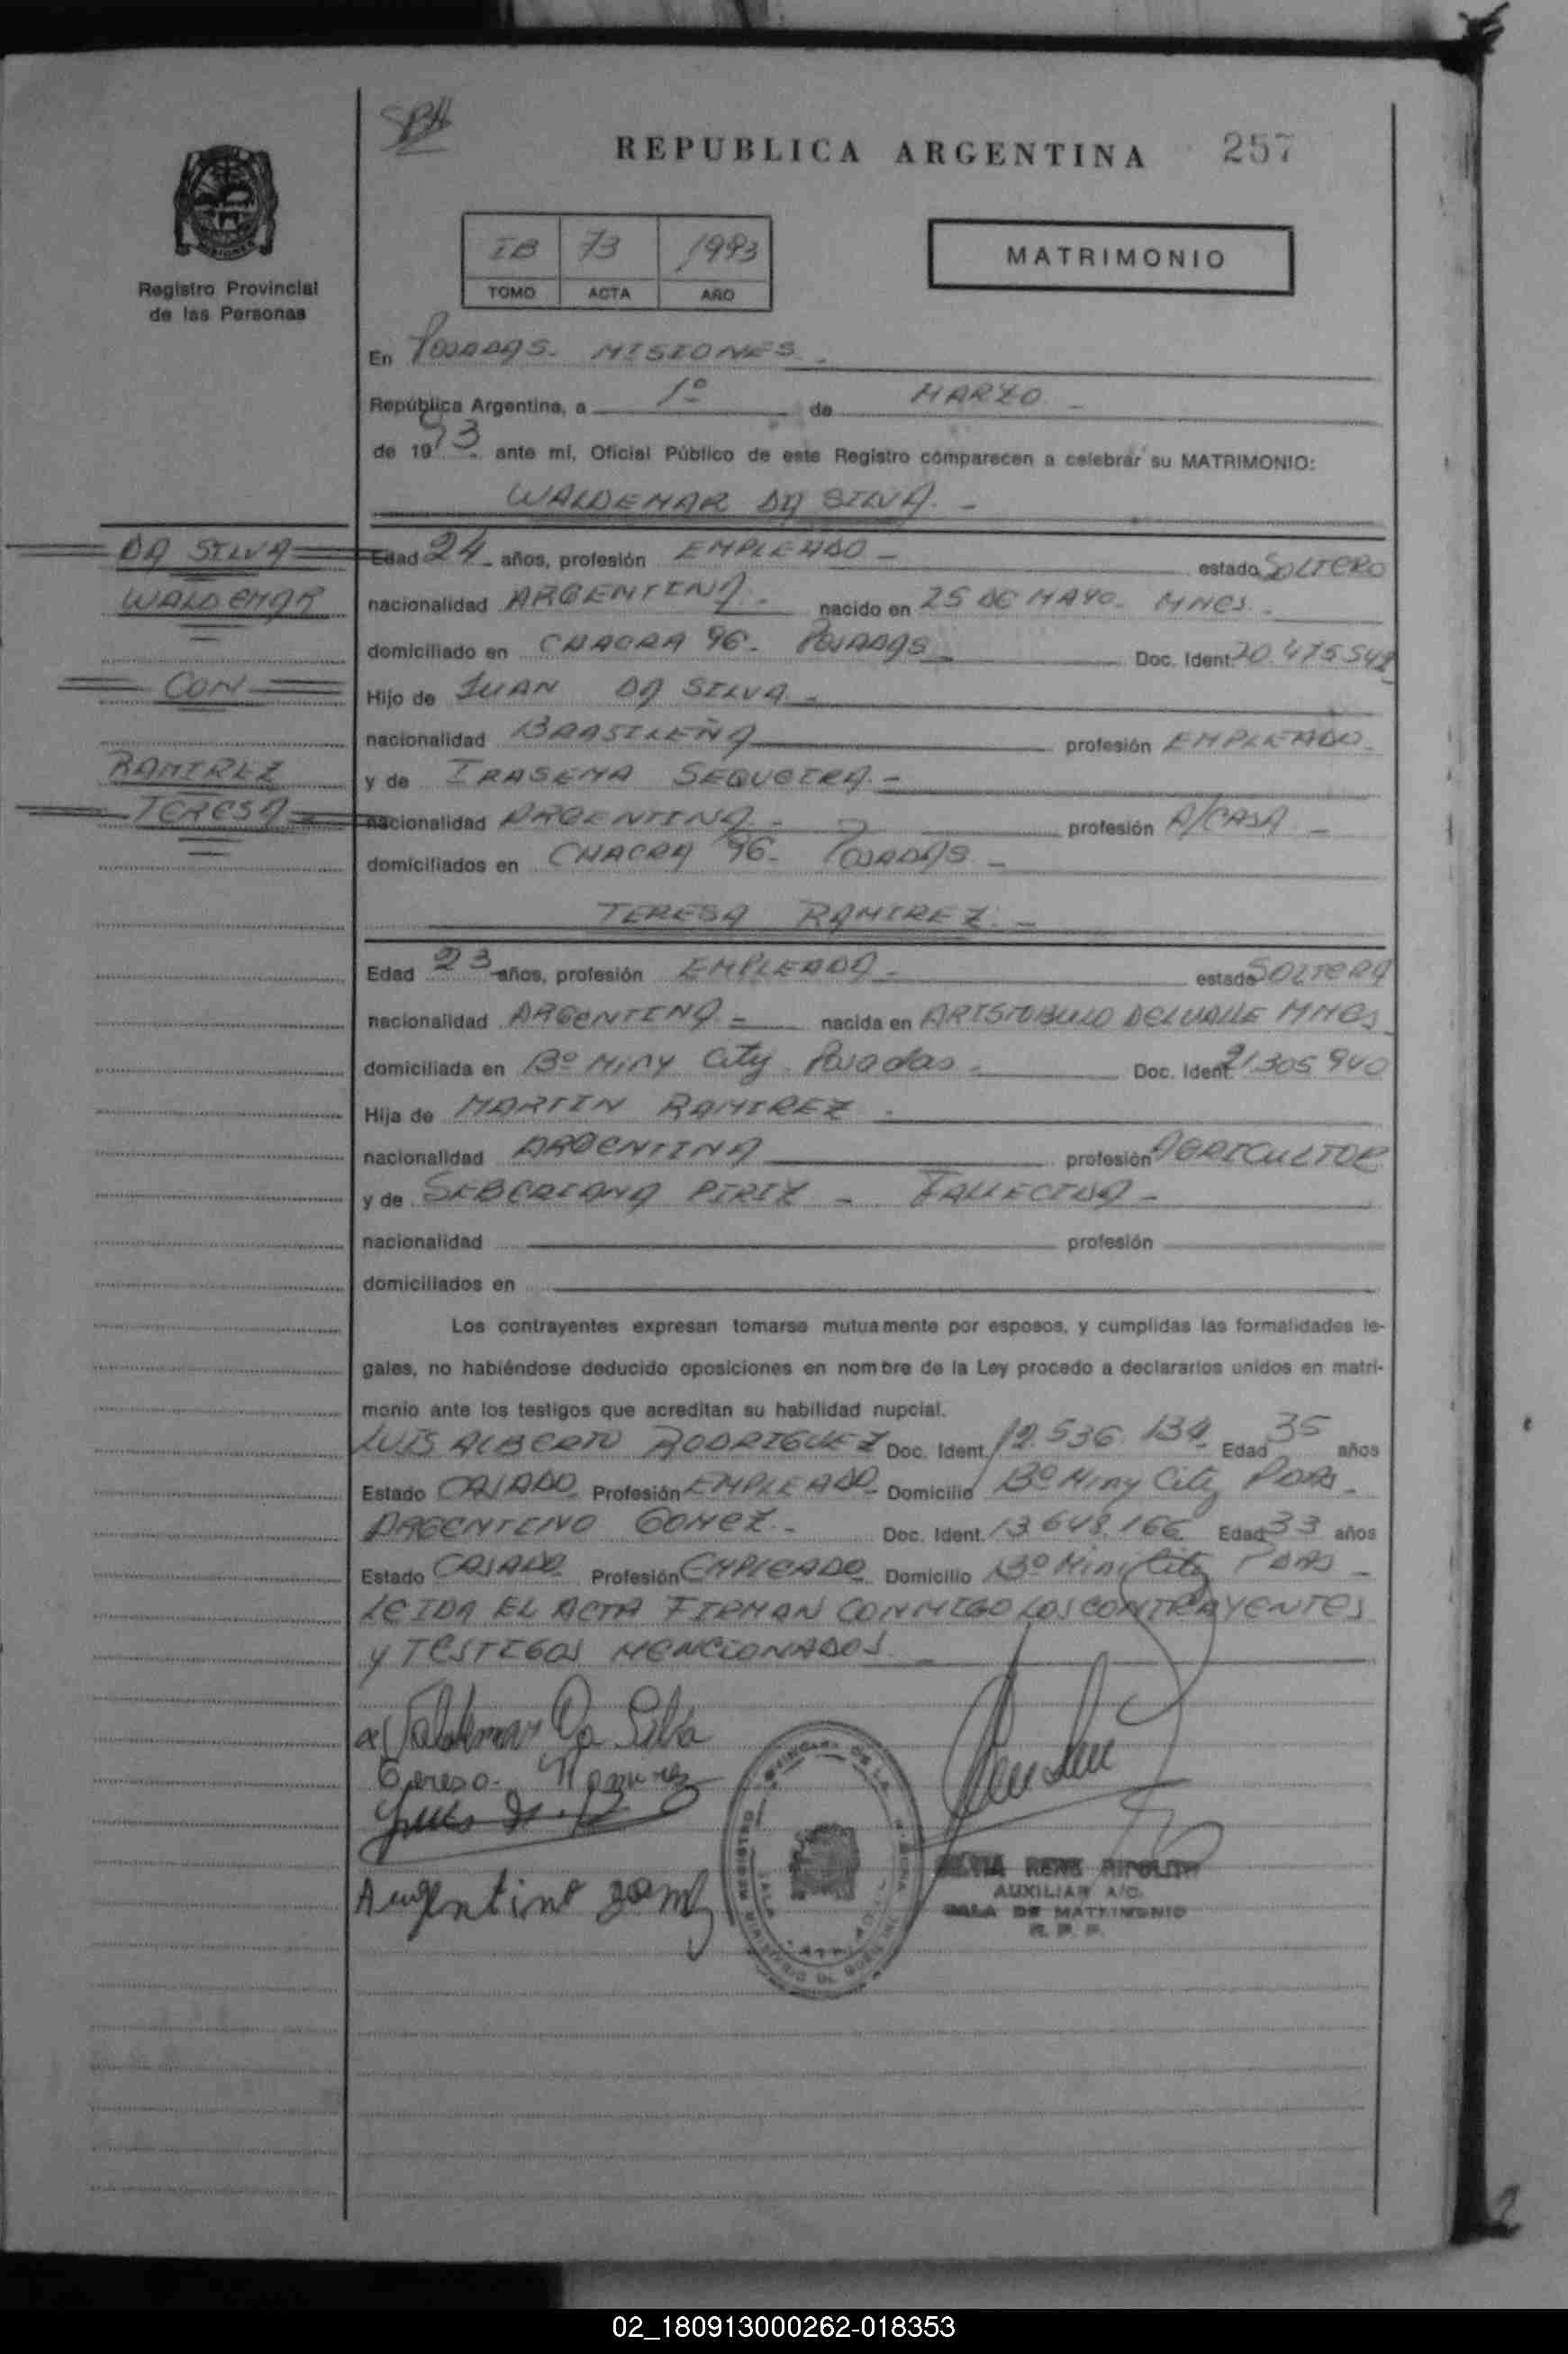 REPUBLICA ARGENTINA 257
Registro Provincial
de las Personas
IB 73 1993
TOMO ACTA AÑO
MATRIMONIO
En POSADAS. MISIONES.
República Argentina, a 1º de MARZO
de 1993 ante mí, Oficial Público de este Registro comparecen a celebrar su MATRIMONIO:
WALDEMAR DA SILVA.
DA SILVA
WALDEMAR
CON
RAMIREZ
TERESA
Edad 24 años, profesión EMPLEADO estado SOLTERO
nacionalidad ARGENTINA. nacido en 25 DE MAYO. MNES.
domiciliado en CHACRA 96. POSADAS Doc. Ident. 20.475.542
Hijo de JUAN DA SILVA
nacionalidad BRASILEÑA profesión EMPLEADO
y de IRASEMA SEQUEIRA.
nacionalidad ARGENTINA profesión A/CASA
domiciliados en CHACRA 96. POSADAS
TERESA RAMIREZ.
Edad 23 años, profesión EMPLEADA estado SOLTERA
nacionalidad ARGENTINA nacida en ARISTOBULO DEL VALLE MNES
domiciliada en Bº MINY City Posadas. Doc. Ident. 21.305.940
Hija de MARTIN RAMIREZ
nacionalidad ARGENTINA profesión AGRICULTOR
y de SEBERIANA PIRIZ - FALLECIDA
nacionalidad profesión
domiciliados en
Los contrayentes expresan tomarse mutuamente por esposos, y cumplidas las formalidades le-
gales, no habiéndose deducido oposiciones en nombre de la Ley procedo a declararlos unidos en matri-
monio ante los testigos que acreditan su habilidad nupcial.
LUIS ALBERTO RODRIGUEZ Doc. Ident. 12.536.134 Edad 35 años
Estado CASADO Profesión EMPLEADO Domicilio Bº Miny City PDAS.
ARGENTINO GOMEZ. Doc. Ident. 13.648.166 Edad 33 años
Estado CASADO Profesión EMPLEADO Domicilio Bº Mini City PDAS
LEIDA EL ACTA FIRMAN CONMIGO LOS CONTRAYENTES
Y TESTIGOS MENCIONADOS.
Valdemar Da Silva
Teresa Ramirez
Argentino Gomez
AUXILIAR A/C.
SALA DE MATRIMONIO
R. P. P.
02_180913000262-018353